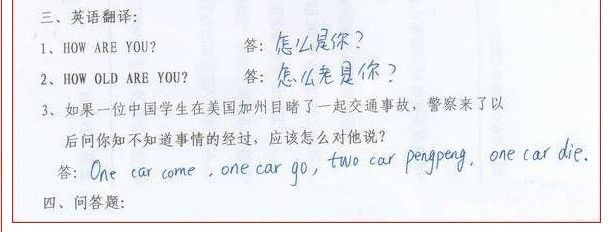 三、英语翻译:
1、HOW ARE YOU? 答: 怎么是你?
2、HOW OLD ARE YOU? 答: 怎么老是你?
3、如果一位中国学生在美国加州目睹了一起交通事故, 警察来了以
后问你知不知道事情的经过, 应该怎么对他说?
答: One car come , one car go , two car pengpeng, one car die.
四、问答题: